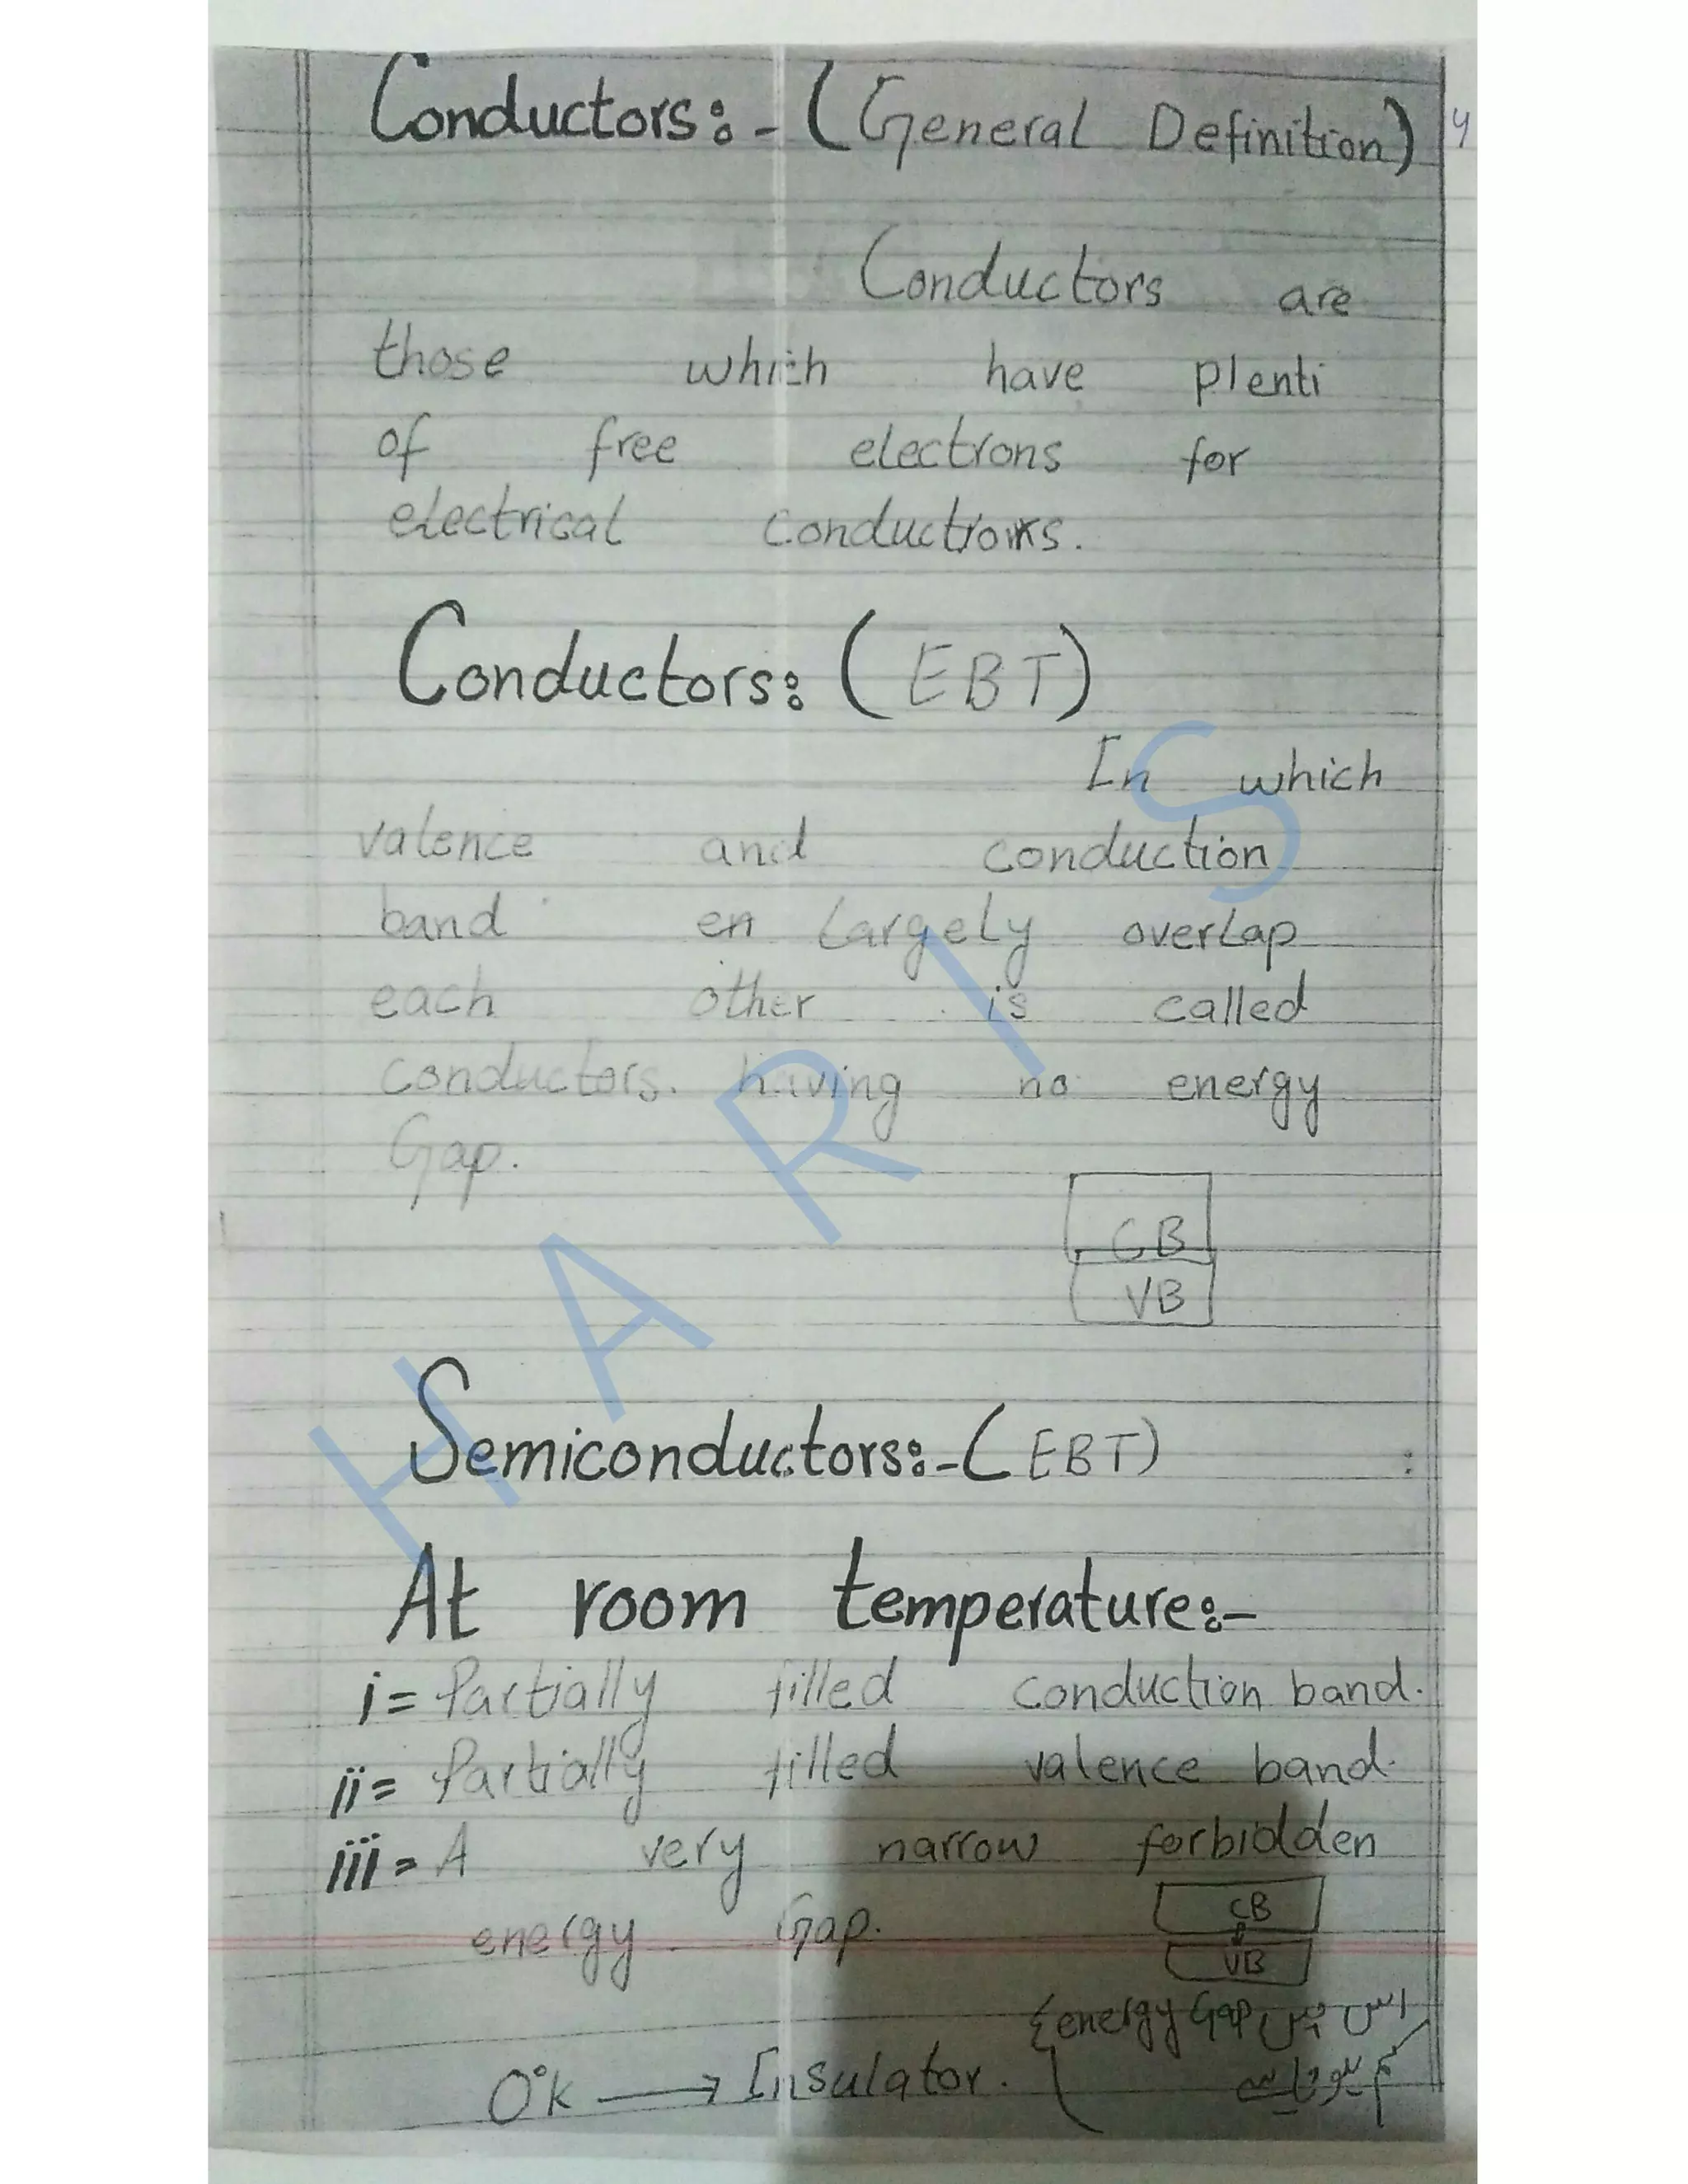 Conductors:- (General Definition) 4
Conductors are
those which have plenti
of free electrons for
electrical conductions.
Conductors: (EBT)
In which
valence and conduction
band en largely overlap
each other is called
conductors. having no energy
Gap.
CB
VB
Semiconductors:- (EBT)
At room temperature:-
i= Partially filled conduction band.
ii= Partially filled valence band.
iii= A very narrow forbidden
energy Gap.
CB
VB
{energy Gap اس میں
0°k → Insulator. کم ہوتا ہے
HARIS